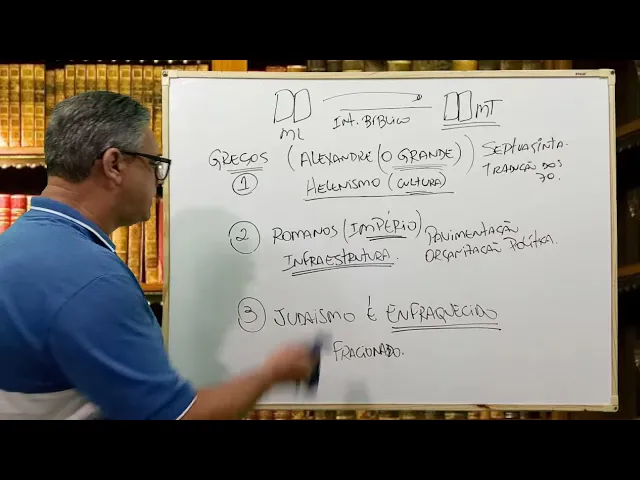 ML
INT. BÍBLICO
MT
GREGOS (ALEXANDRE (O GRANDE)
SEPTUAGINTA.
TRADUÇÃO DOS
70.
1
HELENISMO (CULTURA)
2 ROMANOS (IMPÉRIO)
PAVIMENTAÇÃO
INFRAESTRUTURA.
ORGANIZAÇÃO POLÍTICA.
3 JUDAÍSMO É ENFRAQUECIDO
FRACIONADO.